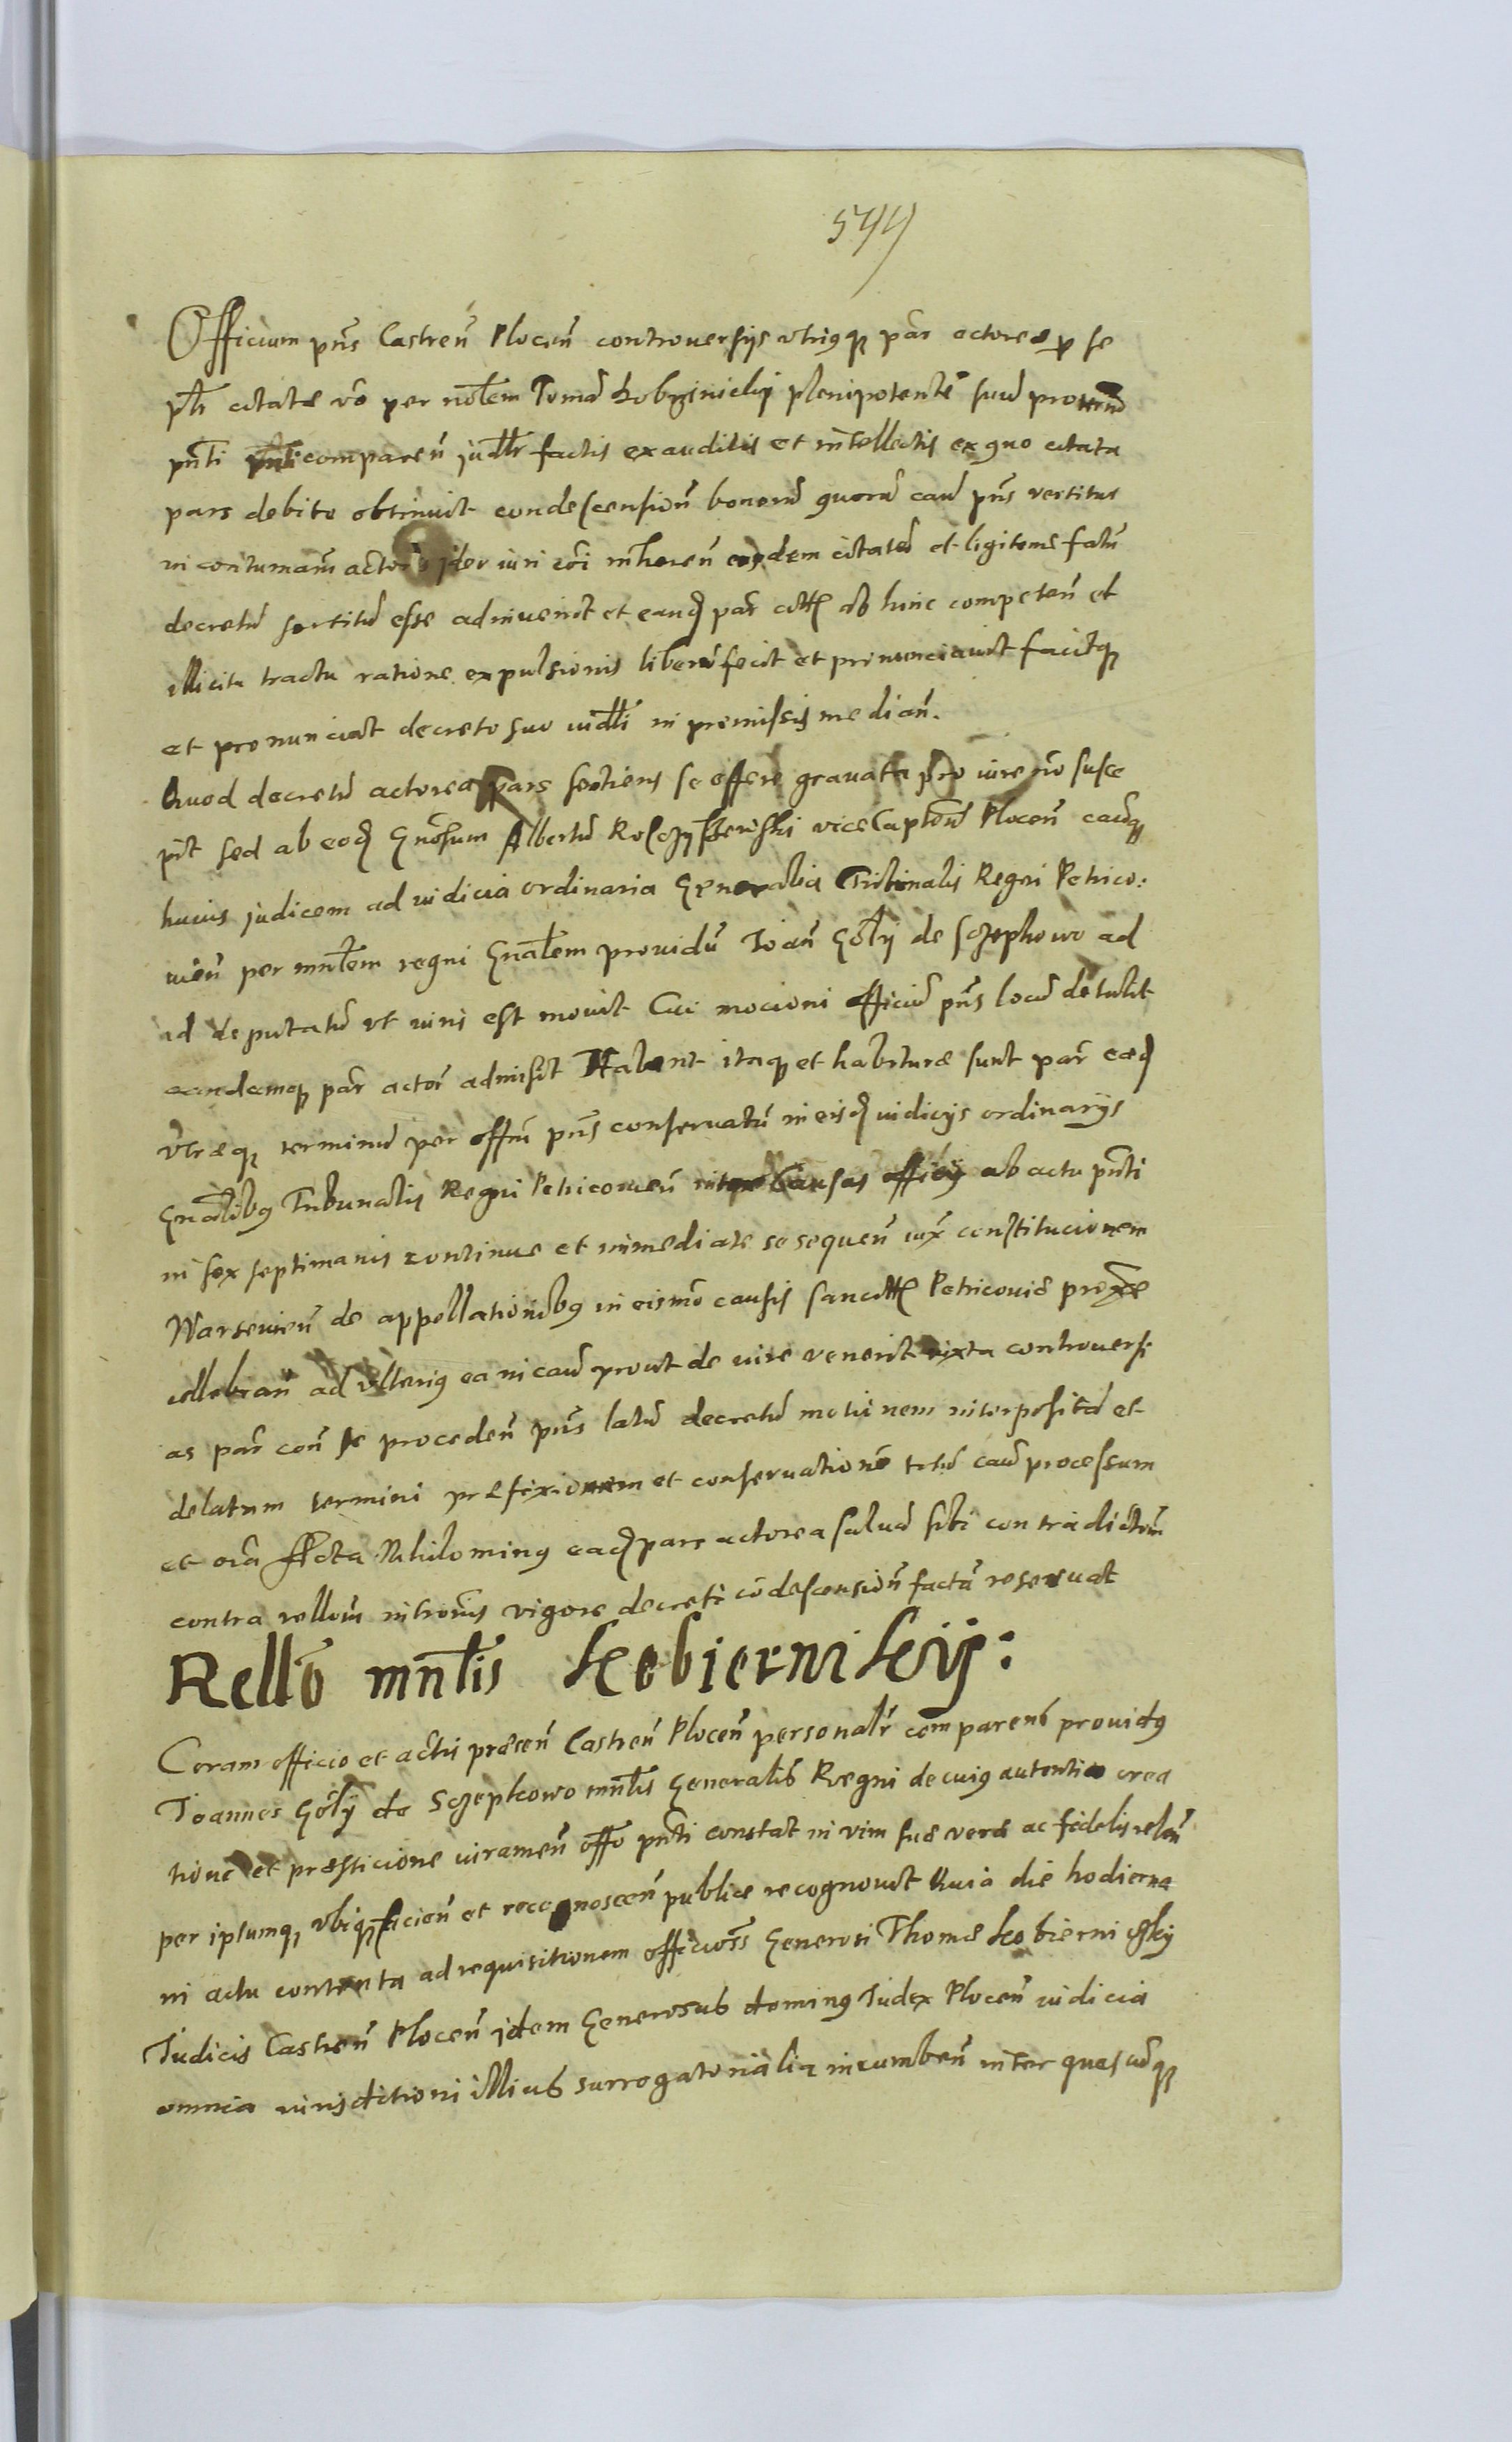 544
Officium pns̃ Castreñ Ploceñ controuersijs vtriusq, par̃ actoreæ p se
ptr̃ citatæ vo per nobilem Tomã plenipotentẽ suũ
pnti compareñ judltr factis exauditis et intellectis ex quo citata
pars debite obtinuit condescensionẽ bonorũ quorũ cauã pns vertitur
in contumaciam iuri cõi inhereñ eosdem citatã et legitime fatũ
decretũ sortitũ esse adinuenit et eand par̃ citt ab hinc competeñ et
illicita tracta ratione expulsionis liberã fecit et pronunciauit facitq,
et pronunciat decreto suo iudlli in premissis median.
Quod decretũ actorea pars sentiens se esse grauatã pro iure nõ susce
pit sed ab eod Gnosum Albertũ viceCaptẽũ Ploceñ cauæq,
huius judicem ad iudicia ordinaria Generalia Tribunalis Regni Petrico:
uieñ per mnlem regni Gnalem prouidũ Joañ Goły de Szczepkowo ad
id deputatũ vt iuris est mouit Cui mocioni officiũ pns locũ detulit
eandemq, par̃ actor̃ admisit Habent itaq, et habituræ sunt par̃ eæd
vtræq, terminũ per offm̃ pns conseruatũ in eisd iudicijs ordinarijs
Gnalibus Tribunalis Regni Petricouieñ inter Causas officij ab actu pnti
in sex septimanis continue et immediate se sequeñ iux constitucionem
Warsevieñ de appellationibus in eismõ causis sancitt Petricouiæ proxe
cellebrañ ad vlterius ea in cauã prout de iure venerit iuxta controuersi
as par̃ coñ se procedeñ pns latũ decretũ motionem interpositã et
delatum termini præfixionem et conseruationẽ totũ cauã processum
et oĩa ffacta Nihilominus ead pars actorea saluã sibi contradictoñ
contra relloñ introm̃is vigore decreti cõdescensioñ factã reseruat
Rellõ mnlis Kobierniskij:
Coram officio et actis præseñ Castreñ Ploceñ personalr comparens prouidus
Joannes Goły de Sczepkowo mnlis Generalis Regni de cuius autentica crea
tione et præsticione iurameñ offo pnti constat in vim suæ veræ ac fidelis reloñ
per ipsumq, vbiq, facieñ et recognosceñ publice recognouit Quia die hodierna
in actu contenta ad requisitionem officioss Generosi Thomæ Kobiernisky
Judicis Castreñ Ploceñ idem Generosus dominus Judex Ploceñ iudicia
omnia iurisdictioni illius surrogatorialia incumbeñ inter quascũq,